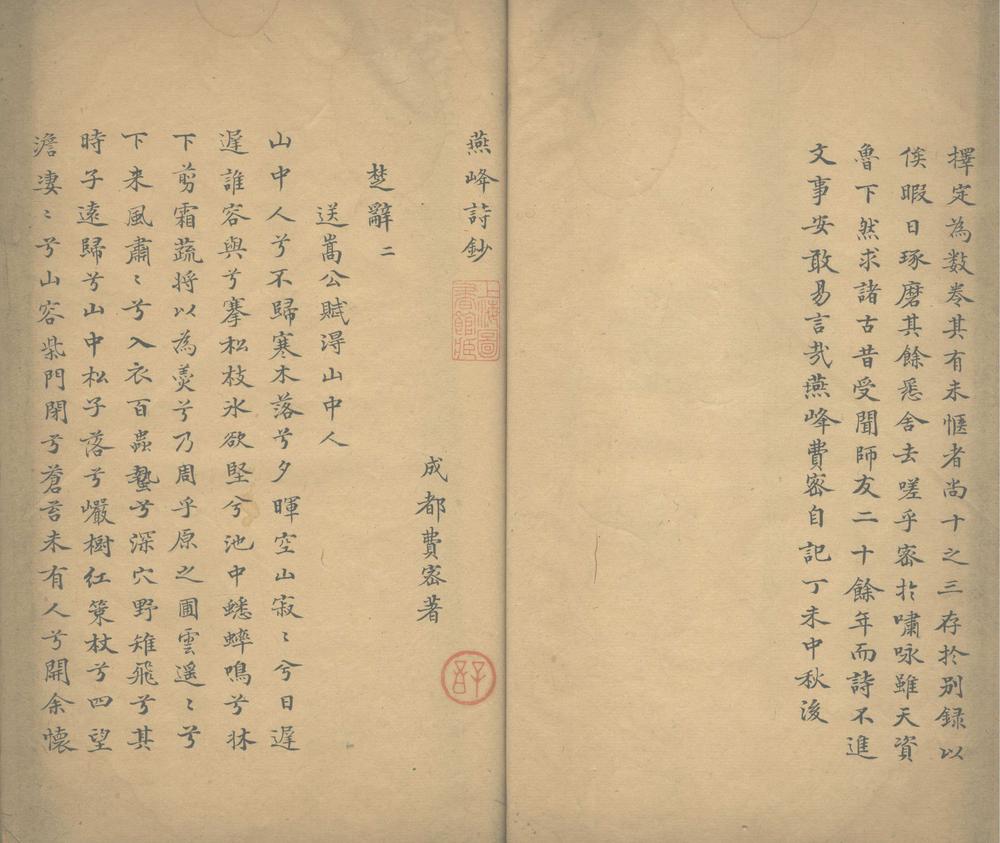 擇定為数卷其有未愜者尚十之三存扵別録以
俟暇日琢磨其餘悉舍去嗟乎宻扵嘯咏雖天資
魯下然求諸古昔受聞師友二十餘年而詩不進
文事安敢易言㦲燕峰費宻自記丁未中秋後
燕峰詩鈔
上海圖書館藏
成都費宻著
楚辭二
送嵩公賦得山中人
山中人兮不歸寒木落兮夕暉空山寂〻兮日遲
遲誰容與兮搴松枝氷欲堅兮池中蟋蟀鳴兮牀
下剪霜蔬将以為羮兮乃周乎原之圃雲遥〻兮
下来風肅〻兮入衣百蟲蟄兮深穴野雉飛兮其
時子遠歸兮山中松子落兮巖樹红策杖兮四望
澹凄〻兮山容柴門閉兮蒼苔未有人兮開余懐